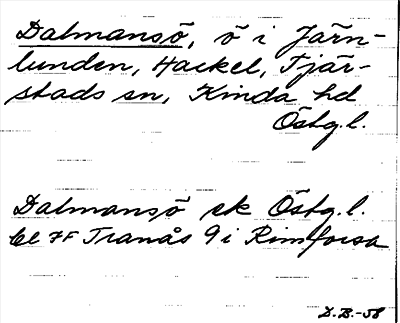 Dalmansö, ö i Järn-
lunden, Hackel, Tjär-
stads sn, Kinda hd
Östg.l.
Dalmansö ek Östg.l.
bl 7F Tranås 9 i Rimforsa
D.B.-58